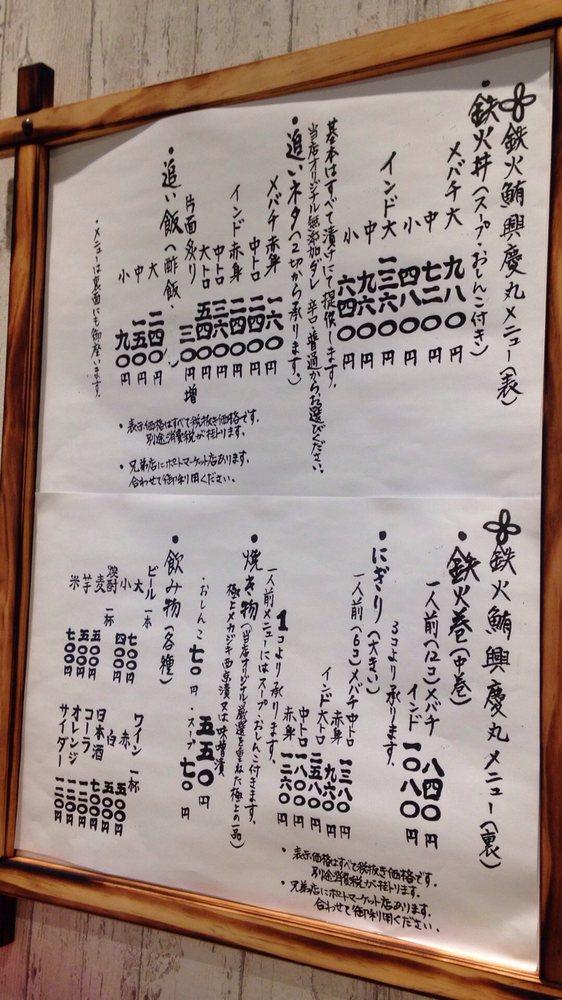 鉄火鮪興慶丸メニュー(表)
・鉄火丼(スープ・おしんこ付き)
メバチ 大 九八〇円
中 七二〇円
小 四八〇円
インド 大 一三六〇円
中 九六〇円
小 六四〇円
基本はすべて漬けにて提供します。
当店オリジナル無添加ダレ 辛口・普通からお選びください。
・追いネタ(2切から承ります。)
メバチ赤身 一六〇円
中トロ 二四〇円
インド赤身 二四〇円
中トロ 三六〇円
大トロ 五四〇円
片面炙り 三〇円増
・追い飯(酢飯)
大 二四〇円
中 一五〇円
小 九〇円
・メニューは裏面にも御座います。
・表示価格はすべて税抜き価格です。
別途消費税が掛かります。
・兄弟店にポートマーケット店あります。
合わせて御利用ください。
鉄火鮪興慶丸メニュー(裏)
・鉄火巻(中巻)
一人前(12コ)メバチ 八四〇円
インド 一〇八〇円
3コより承ります。
・にぎり(大きい)
一人前(6コ)メバチ中トロ 一三八〇円
赤身 九六〇円
インド大トロ 二五八〇円
中トロ 一八〇〇円
赤身 一二六〇円
1コより承ります。
一人前メニューにはスープ・おしんこ付きます。
・焼き物(当店オリジナル厳選を重ねた極上の一品)
極上メカジキ西京漬又は味噌漬 五五〇円
・おしんこ 七〇円 ・スープ 七〇円
・飲み物(各種)
ビール一本
大 七〇〇円
小 四〇〇円
焼酎一杯
麦 五〇〇円
芋 五〇〇円
米 七〇〇円
ワイン一杯
赤 五〇〇円
白 五〇〇円
日本酒 七〇〇円
コーラ 一二〇円
オレンジ 一二〇円
サイダー 一二〇円
・表示価格はすべて税抜き価格です。
別途消費税が掛かります。
・兄弟店にポートマーケット店あります。
合わせて御利用ください。